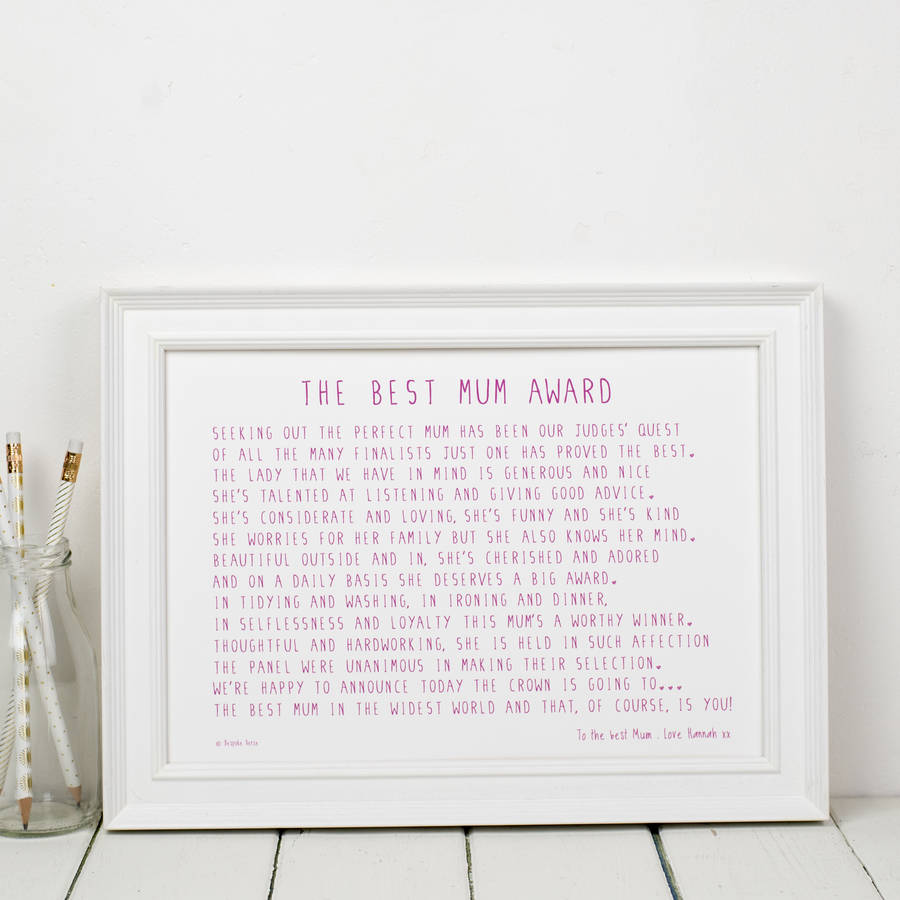 THE BEST MUM AWARD
SEEKING OUT THE PERFECT MUM HAS BEEN OUR JUDGES' QUEST
OF ALL THE MANY FINALISTS JUST ONE HAS PROVED THE BEST.
THE LADY THAT WE HAVE IN MIND IS GENEROUS AND NICE
SHE'S TALENTED AT LISTENING AND GIVING GOOD ADVICE.
SHE'S CONSIDERATE AND LOVING, SHE'S FUNNY AND SHE'S KIND
SHE WORRIES FOR HER FAMILY BUT SHE ALSO KNOWS HER MIND.
BEAUTIFUL OUTSIDE AND IN, SHE'S CHERISHED AND ADORED
AND ON A DAILY BASIS SHE DESERVES A BIG AWARD.
IN TIDYING AND WASHING, IN IRONING AND DINNER,
IN SELFLESSNESS AND LOYALTY THIS MUM'S A WORTHY WINNER.
THOUGHTFUL AND HARDWORKING, SHE IS HELD IN SUCH AFFECTION
THE PANEL WERE UNANIMOUS IN MAKING THEIR SELECTION.
WE'RE HAPPY TO ANNOUNCE TODAY THE CROWN IS GOING TO...
THE BEST MUM IN THE WIDEST WORLD AND THAT, OF COURSE, IS YOU!
To the best Mum . Love Hannah xx
© Bespoke Verse